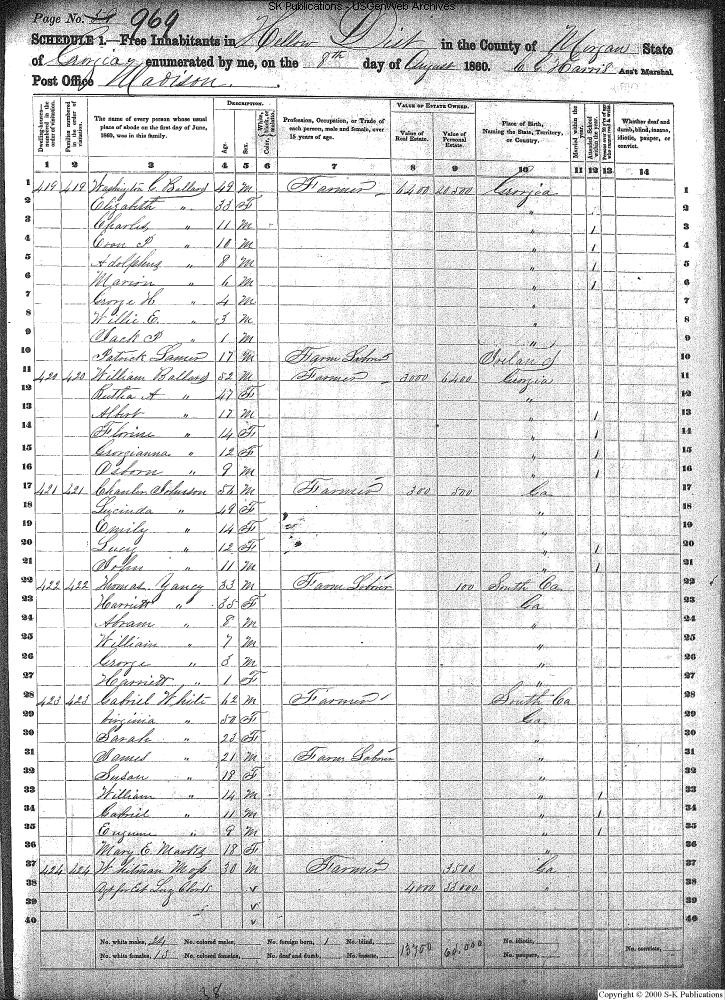 SK Publications - USGenWeb Archives
Page No. 969
SCHEDULE 1.—Free Inhabitants in Hellow Dist in the County of Morgan State
of Georgia enumerated by me, on the 8th day of August 1860. C C Harris Ass't Marshal.
Post Office Madison
Dwelling-houses— numbered in the order of visitation.
Families numbered in the order of visitation.
The name of every person whose usual place of abode on the first day of June, 1860, was in this family.
DESCRIPTION.
Age.
Sex.
Color, { White, black, or mulatto.
Profession, Occupation, or Trade of each person, male and female, over 15 years of age.
VALUE OF ESTATE OWNED.
Value of Real Estate.
Value of Personal Estate.
Place of Birth, Naming the State, Territory, or Country.
Married within the year.
Attended School within the year.
Whether deaf and dumb, blind, insane, idiotic, pauper, or convict.
1 2 3 4 5 6 7 8 9 10 11 12 13 14
1 419 419 Washington C. Ballard 49 M Farmer 6400 20500 Georgia 1
2 Elizabeth " 33 F " 2
3 Charles " 11 M " 1 3
4 " 10 M " 1 4
5 Adolphus " 8 M " 1 5
6 Marion " 6 M " 1 6
7 George H " 4 M " 7
8 Willie E. " 3 M " 8
9 Jack P " 1 M " 9
10 Patrick 17 M Farm Labor Ireland 10
11 420 420 William Ballard 52 M Farmer 3000 6400 Georgia 11
12 A " 47 F " 12
13 Albert " 17 M " 1 13
14 Florine " 14 F " 1 14
15 Georgianna " 12 F " 1 15
16 Osborn " 9 M " 1 16
17 421 421 Johnson 54 M Farmer 300 500 Ga 17
18 Lucinda " 49 F " 18
19 Emily " 14 F " 19
20 Lucy " 12 F " 1 20
21 John " 11 M " 1 21
22 422 422 Thomas Yancy 33 M Farm Laborer 100 South Ca 22
23 Harriett " 35 F Ga 23
24 Abram " 8 M " 24
25 William " 7 M " 25
26 George " 3 M " 26
27 Harriett " 1 F " 27
28 423 423 Gabriel White 62 M Farmer South Ca 28
29 Virginia " 50 F Ga 29
30 Sarah " 23 F " 30
31 James " 21 M Farm Laborer " 31
32 Susan " 18 F " 32
33 William " 14 M " 1 33
34 Gabriel " 11 M " 1 34
35 Eugene " 9 M " 1 35
36 Mary E. 18 F " 36
37 424 424 30 M Farmer 3500 Ga 37
38 Agt for Est 4000 33000 " 38
39 39
40 40
No. white males, 24 No. colored males, No. foreign born, 1 No. blind, 13700 No. idiotic, No. convicts,
No. white females, 13 No. colored females, No. deaf and dumb, No. insane, No. paupers,
Copyright © 2000 S-K Publications